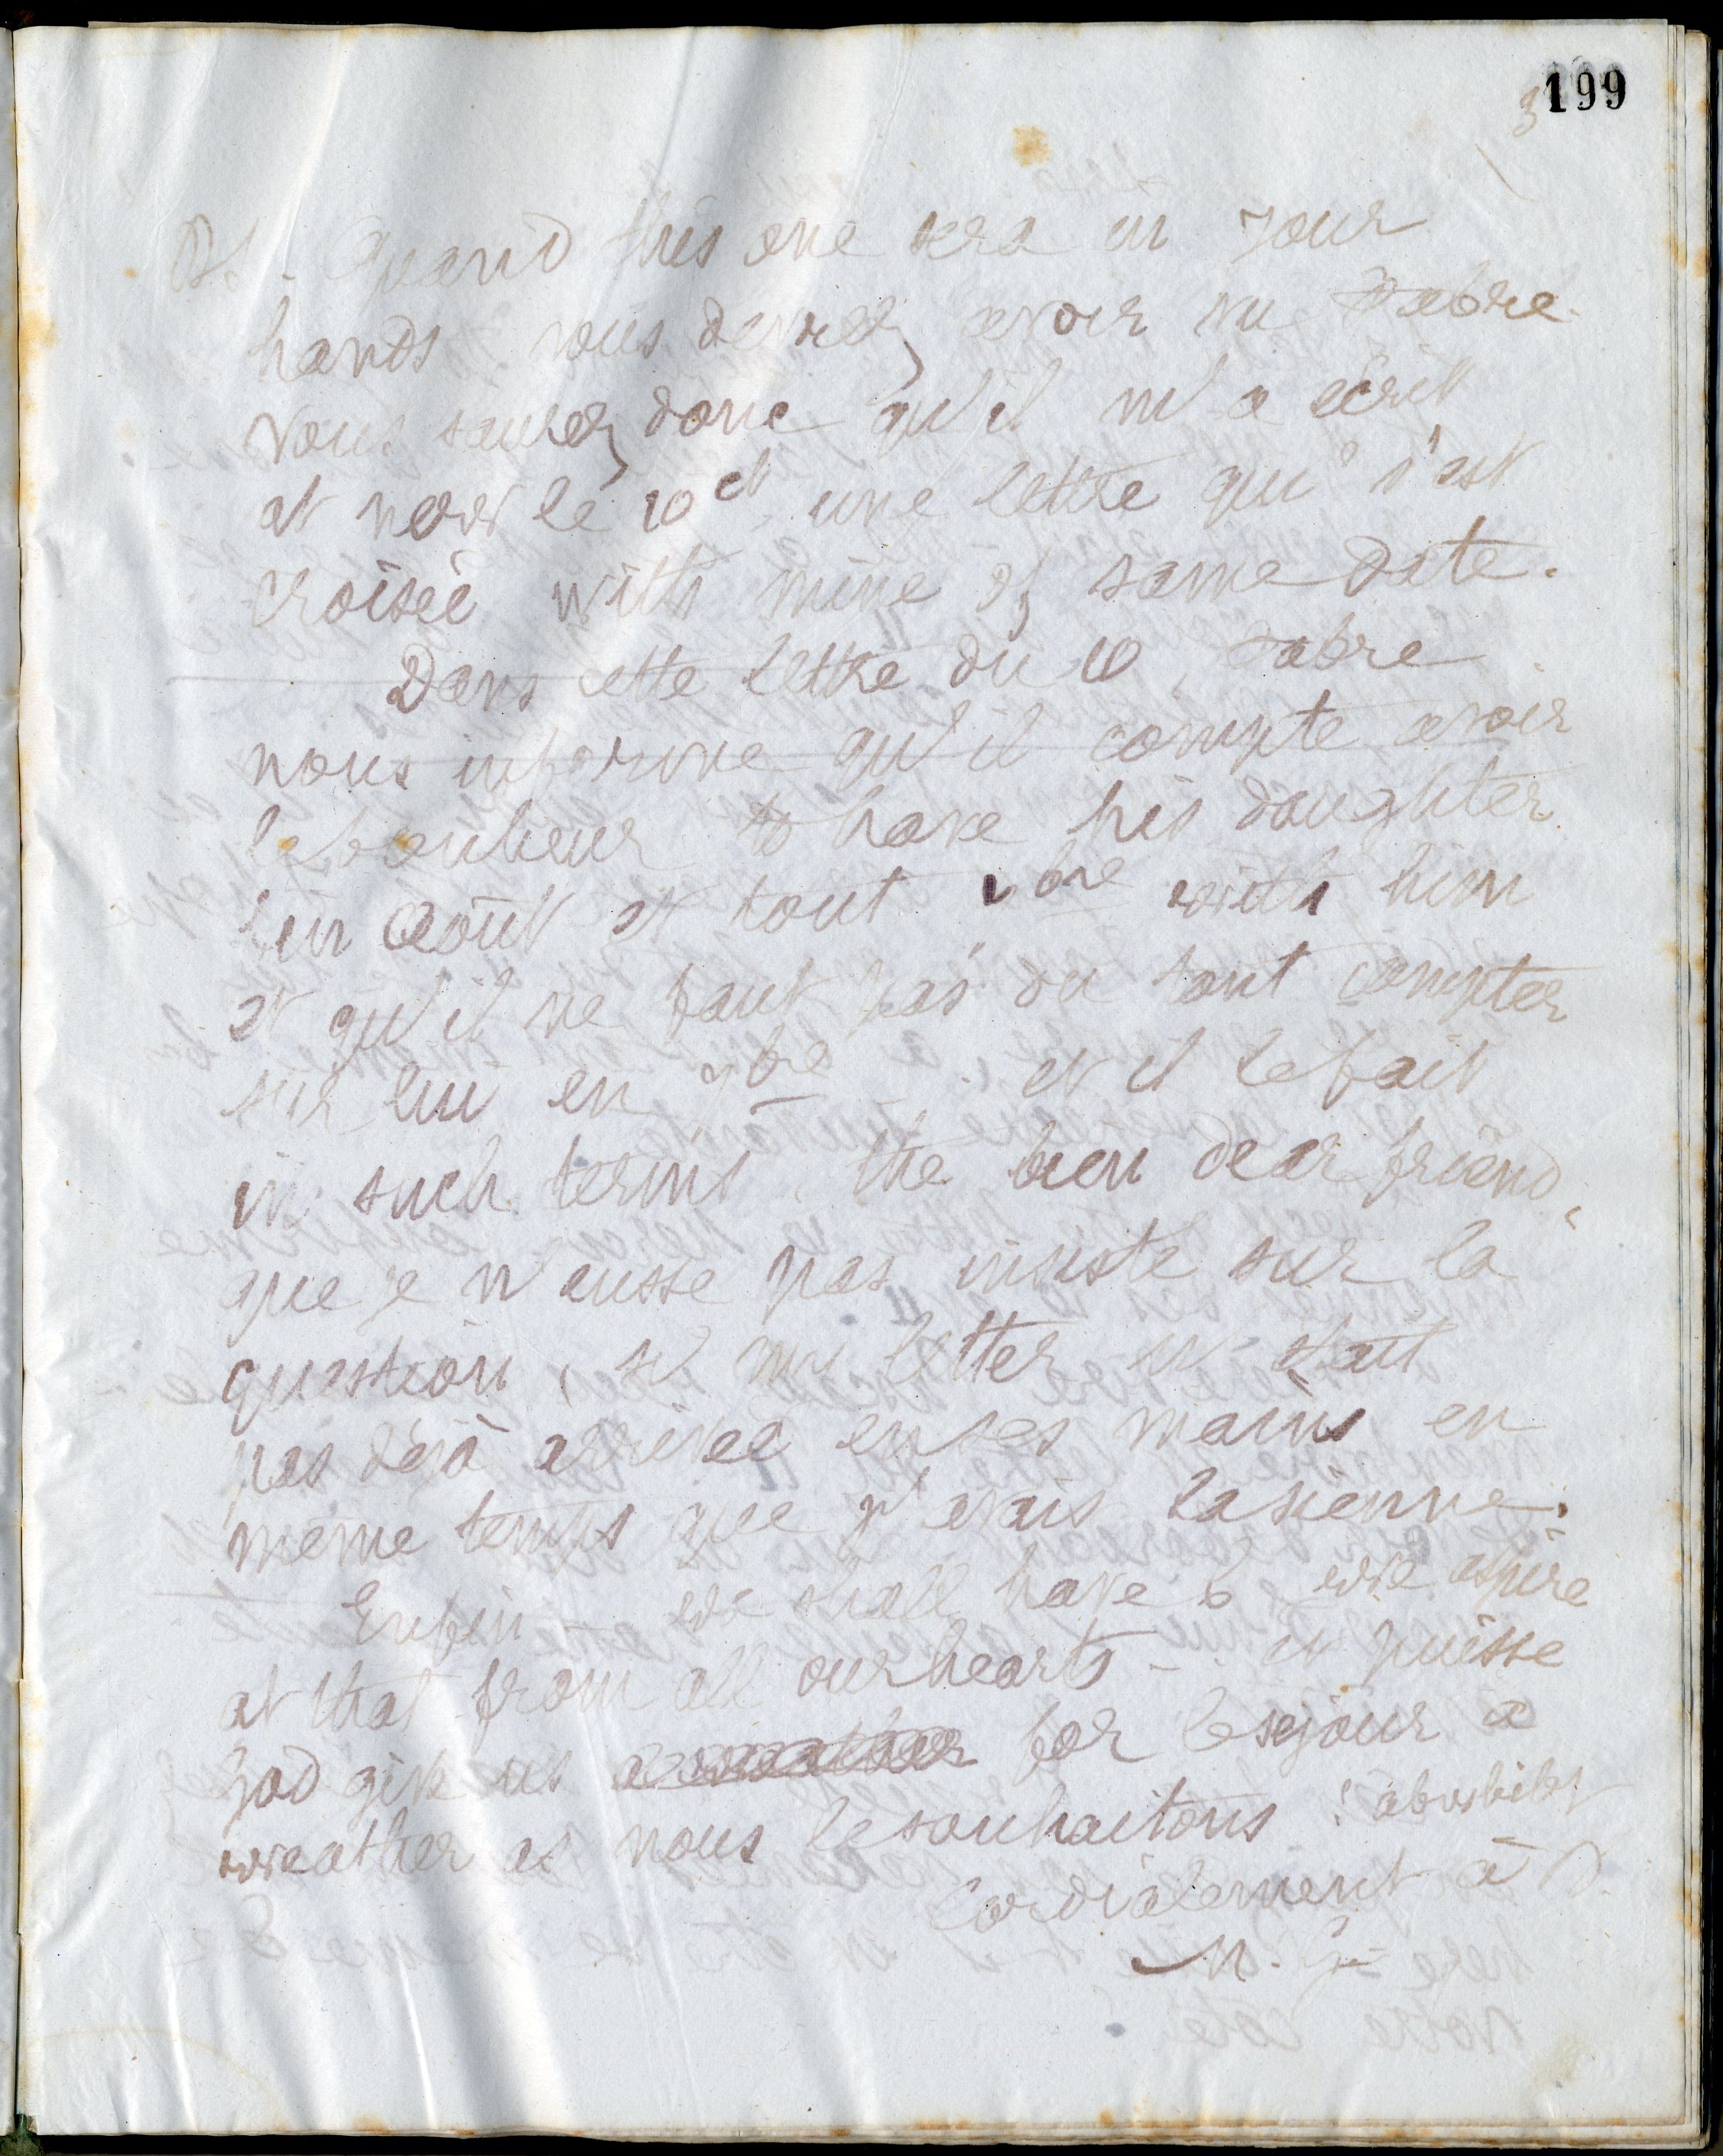 199
3
PS. - Quand this one sera in your
hands vous devrez avoir vu Fabre.
Vous saurez donc qu'il m'a écrit
et need le 10 ct une lettre qui s'est
croisée with mine of same date.
Dans cette lettre du 10, Fabre
nous informe qu'il compte avoir
le bonheur to have his daughter
fin Août et tout 7bre with him
et qu'il ne faut pas du tout compter
sur lui en 7bre - et il le fait
in such terms, the bien dear friend,
que je n'eusse pas insisté sur la
question, si my letter n'était
pas déjà arrivée en ses mains en
même temps que j'avais la sienne.
Enfin - we shall have 6, we aspire
at that from all our hearts - et puisse
God give us a weather for le séjour a
weather as nous le souhaitons !
Cordialement à V.
M. G=